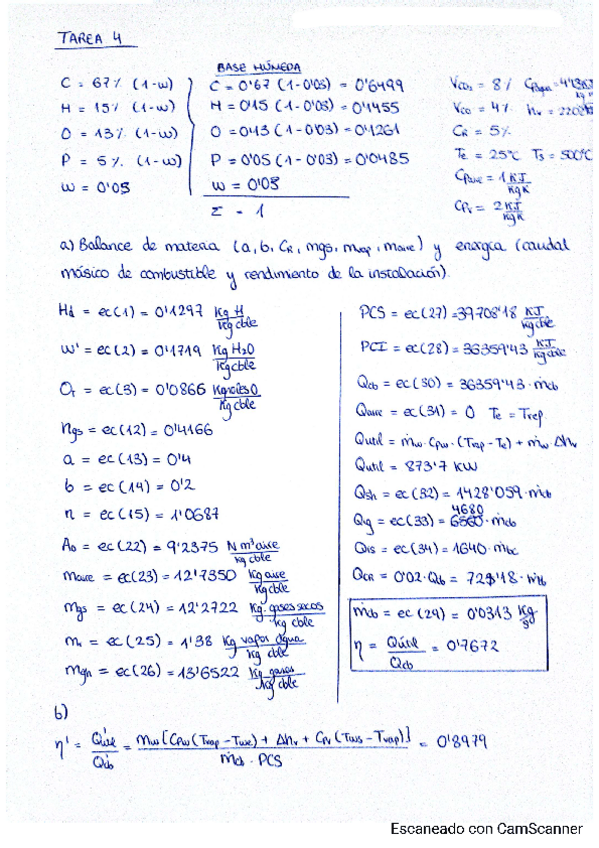 TAREA 4
BASE HÚMEDA
C = 67% (1-w)
H = 15% (1-w)
O = 13% (1-w)
P = 5% (1-w)
w = 0'03
C = 0'67 (1-0'03) = 0'6499
H = 0'15 (1-0'03) = 0'1455
O = 0'13 (1-0'03) = 0'1261
P = 0'05 (1-0'03) = 0'0485
w = 0'03
Σ = 1
V_CO2 = 8%
V_CO = 4%
C_R = 5%
Te = 25°C Ts = 500°C
Cp_aire = 1 KJ/KgK
Cp_v = 2 KJ/KgK
a) Balance de materia (a, b, C_R, mgs, mvap, maire) y energía (caudal
másico de combustible y rendimiento de la instalación).
Hd = ec(1) = 0'1297 Kg H/Kg cble
w' = ec(2) = 0'1719 Kg H2O/Kg cble
O_t = ec(3) = 0'0866 Kg moles O/Kg cble
ngs = ec(12) = 0'4166
a = ec(13) = 0'4
b = ec(14) = 0'2
n = ec(15) = 1'0687
Ao = ec(22) = 9'2375 N m³ aire/kg cble
maire = ec(23) = 12'7350 Kg aire/Kg cble
mgs = ec(24) = 12'2722 Kg gases secos/kg cble
mv = ec(25) = 1'38 Kg vapor agua/kg cble
mgh = ec(26) = 13'6522 Kg gases/kg cble
PCS = ec(27) = 39708'18 KJ/kg cble
PCI = ec(28) = 36359'43 KJ/kg cble
Qcb = ec(30) = 36359'43 · ṁcb
Qaire = ec(31) = 0 Te = Tref
Qutil = ṁw · Cpw · (Tvap - Te) + ṁw · Δhv
Qutil = 873'7 KW
Qsh = ec(32) = 1428'059 · ṁcb
4680
Qig = ec(33) = 6560 · ṁcb
Qis = ec(34) = 1640 · ṁbc
Q_CR = 0'02 · Qcb =
ṁcb = ec(29) = 0'0313 Kg/s
η = Qútil/Qcb = 0'7672
b)
η' = Q'útil/Q'cb = ṁw [Cpw (Tvap - Twe) + Δhv + Cpv (Tws - Tvap)] / ṁcb · PCS = 0'8979
Escaneado con CamScanner